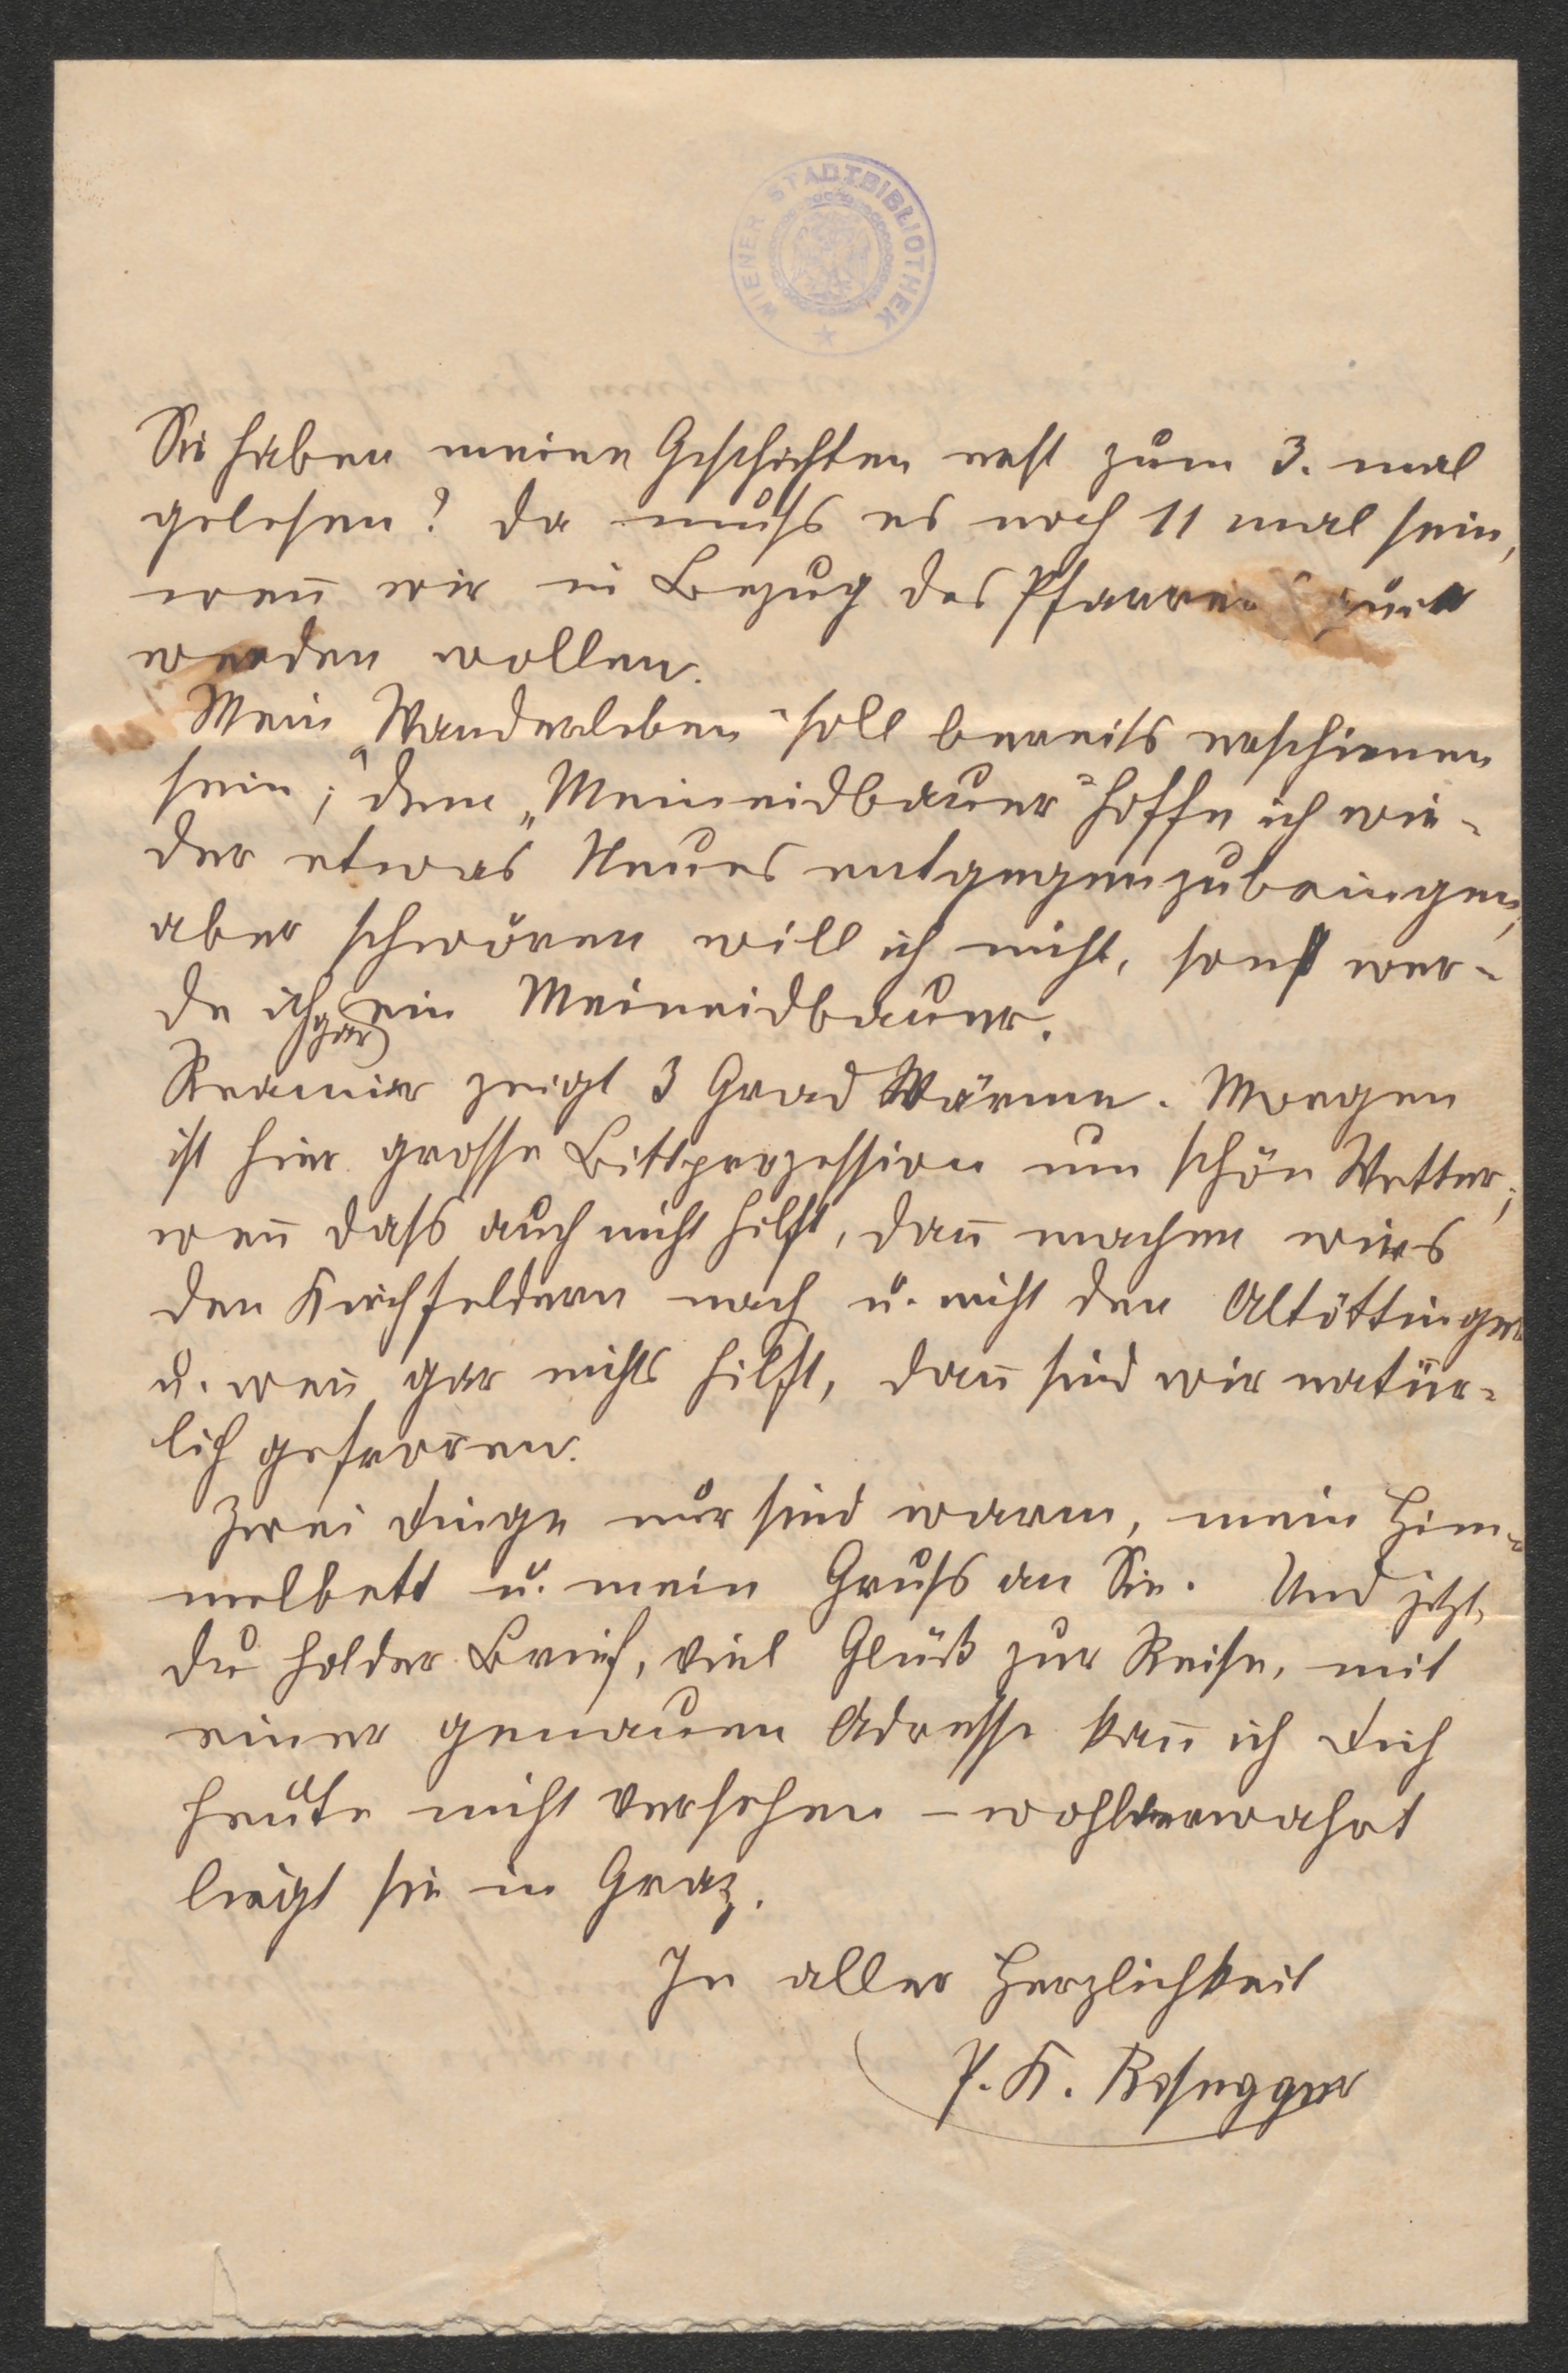 WIENER STADTBIBLIOTHEK
Sie haben meine Geschichten erst zum 3. mal
gelesen? Da muß es noch 11 mal sein,
wen̄ wir in Bezug des Pfarrers quit
werden wollen.
Mein „Wanderleben“ soll bereits erschienen
sein; dem „Meineidbauer“ hoffe ich wie-
der etwas Neues entgegenzubringen,
aber schwören will ich nicht, sonst wer-
de ich gar ein Meineidbauer.
Reamir zeigt 3 Grad Wärme. Morgen
ist hier grosse Bittprozession um schön Wetter;
wen̄ daß auch nicht hilft, dan̄ machen wirs
den Kirchfeldern nach u. nicht den Altöttinger
u. wen̄ gar nichts hilft, dan̄ sind wir natür-
lich gefroren.
Zwei Dinge nur sind warm, mein Him-
melbett u. mein Gruß an Sie. Und jetzt,
du holder Brief, viel Glück zur Reise, mit
einer genauen Adresse kan̄ ich dich
heute nicht versehen – wohlverwahrt
liegt sie in Graz.
In aller Herzlichkeit
P. K. Rosegger